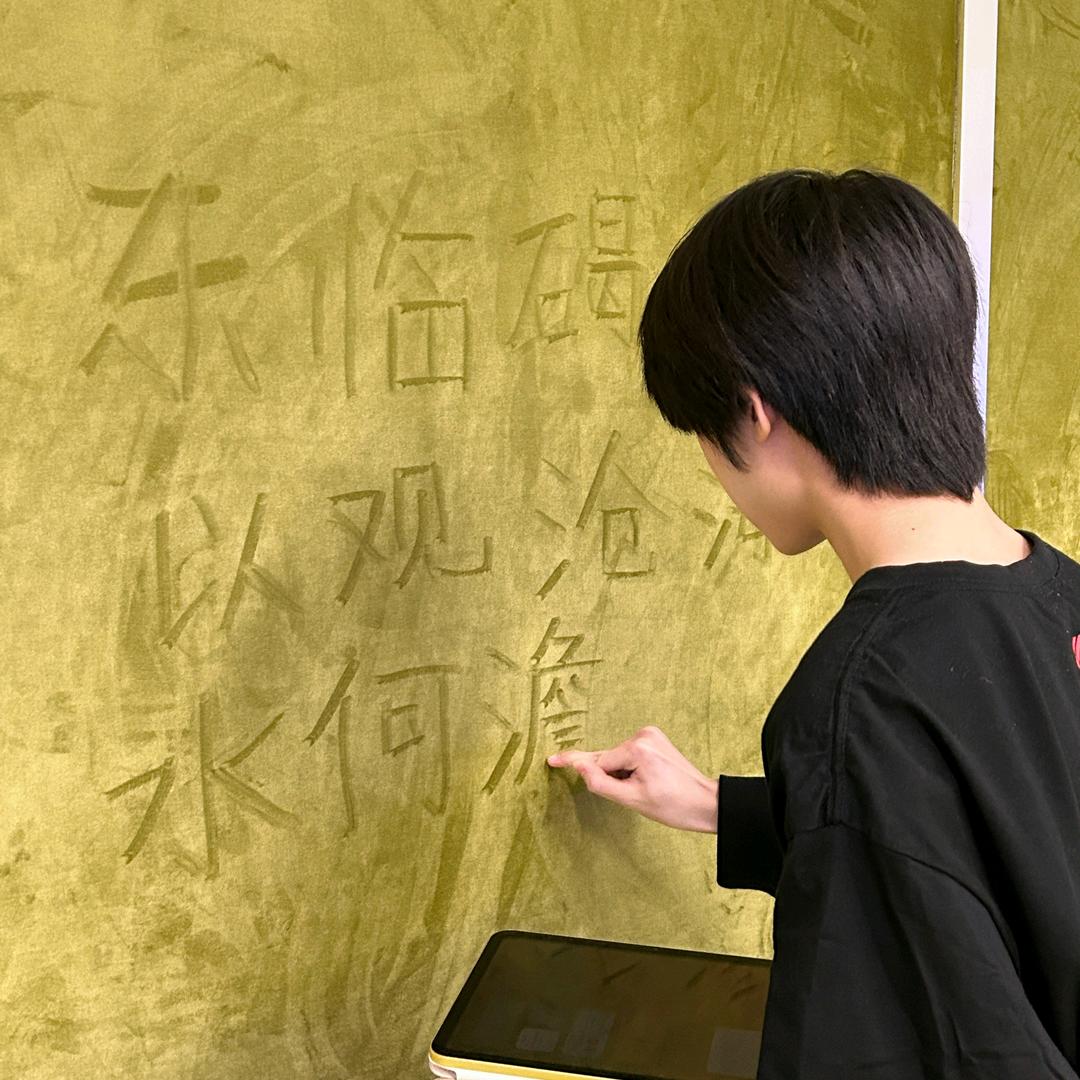 东临碣
以观沧海
水何澹